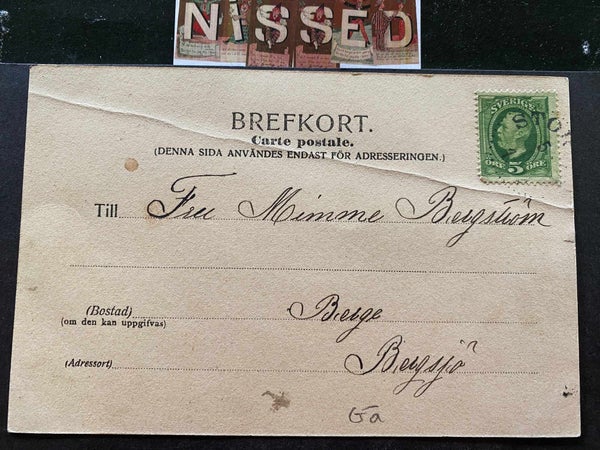 NISSED
BREFKORT.
Carte postale.
(DENNA SIDA ANVÄNDES ENDAST FÖR ADRESSERINGEN.)
SVERIGE
STO
ÖRE 5 ÖRE
Till Fru Mimme Bergström
(Bostad) Berge
(om den kan uppgifvas)
(Adressort) Bergsjö